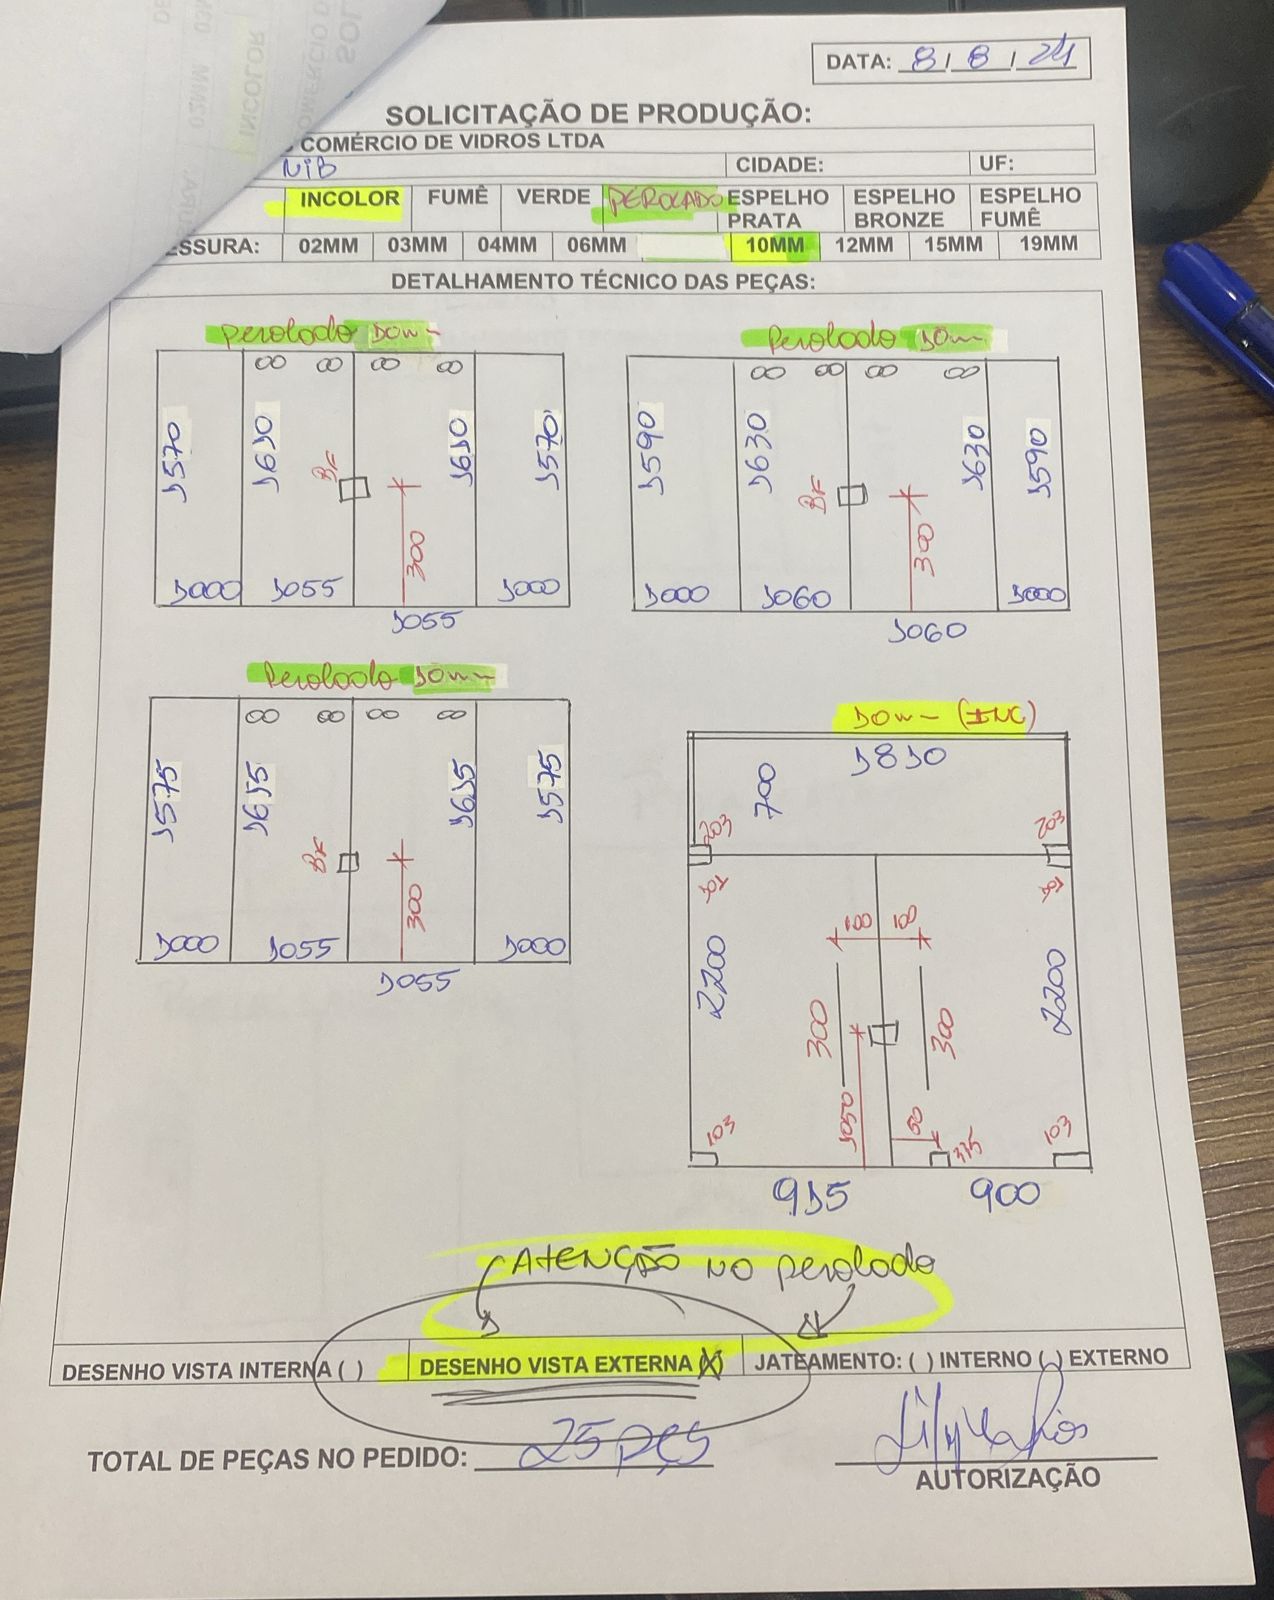 DATA: 8 / 8 / 24
SOLICITAÇÃO DE PRODUÇÃO:
COMÉRCIO DE VIDROS LTDA
NIB CIDADE: UF:
INCOLOR FUMÊ VERDE PEROLADO ESPELHO PRATA ESPELHO BRONZE ESPELHO FUMÊ
ESSURA: 02MM 03MM 04MM 06MM 10MM 12MM 15MM 19MM
DETALHAMENTO TÉCNICO DAS PEÇAS:
Perolado 10mm
1570 1610 BF 1610 1570
300
1000 1055 1000
1055
Perolado 10mm
1590 1630 BF 1630 1590
300
1000 1060 1000
1060
Perolado 10mm
1575 1615 BF 1615 1575
300
1000 1055 1000
1055
10mm (INC)
1810
700
203 203
101 101
100 100
2200 2200
300 300
1050 50
103 335 103
915 900
ATENÇÃO NO perolado
DESENHO VISTA INTERNA ( ) DESENHO VISTA EXTERNA (X) JATEAMENTO: ( ) INTERNO ( ) EXTERNO
TOTAL DE PEÇAS NO PEDIDO: 25 pçs
AUTORIZAÇÃO